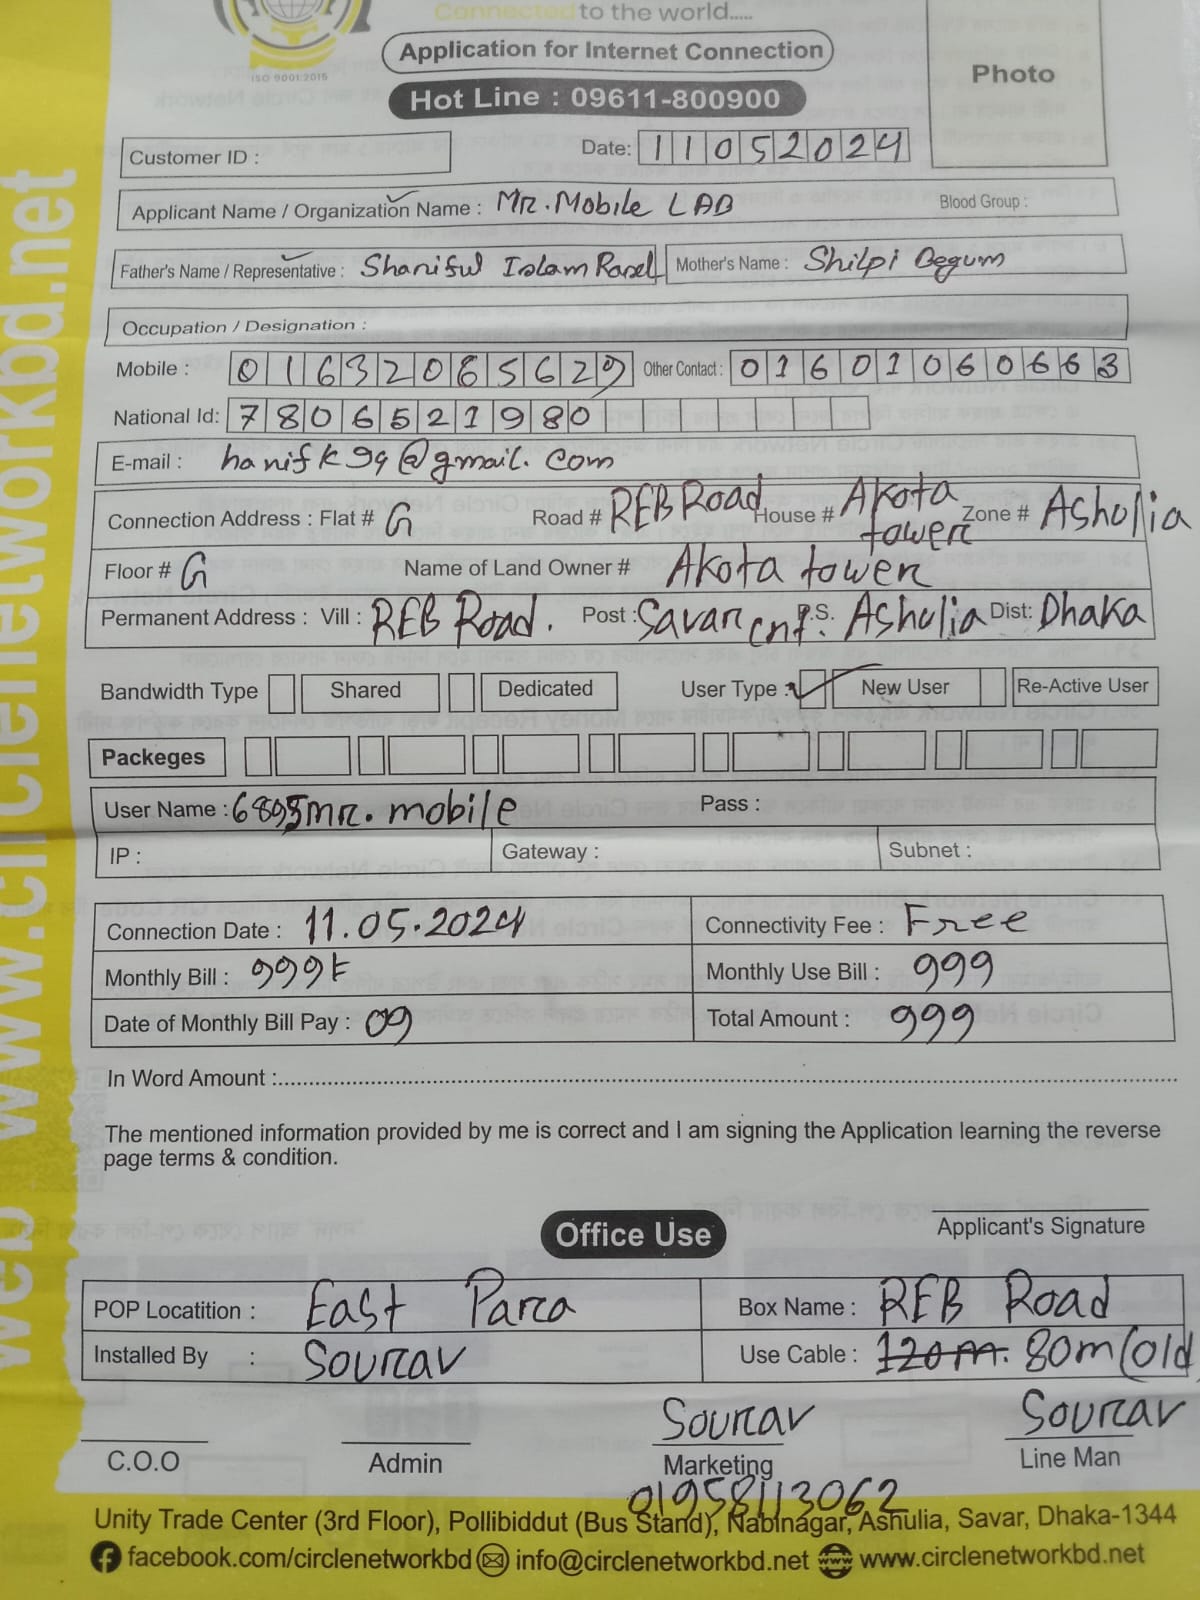 Connected to the world.....
ISO 9001:2015
Application for Internet Connection
Hot Line : 09611-800900
Photo
Customer ID :
Date: 11052024
Applicant Name / Organization Name : Mr. Mobile LAB
Blood Group :
Father's Name / Representative : Shariful Islam Rasel
Mother's Name : Shilpi Begum
Occupation / Designation :
Mobile : 01632085629
Other Contact : 01601060663
National Id: 7806521980
E-mail : hanifk99@gmail.com
Connection Address : Flat # G Road # REB Road House # Akota tower Zone # Ashulia
Floor # G Name of Land Owner # Akota tower
Permanent Address : Vill : REB Road. Post : Savar cnt. P.S. Ashulia Dist: Dhaka
Bandwidth Type Shared Dedicated User Type : New User Re-Active User
Packeges
User Name : 6895mr.mobile Pass :
IP : Gateway : Subnet :
Connection Date : 11.05.2024 Connectivity Fee : Free
Monthly Bill : 999৳ Monthly Use Bill : 999
Date of Monthly Bill Pay : 09 Total Amount : 999
In Word Amount :
The mentioned information provided by me is correct and I am signing the Application learning the reverse
page terms & condition.
Applicant's Signature
Office Use
POP Locatition : East Para Box Name : REB Road
Installed By : Sourav Use Cable : 120m. 80m (old
Sourav Sourav
C.O.O Admin Marketing Line Man
01958113062
Unity Trade Center (3rd Floor), Pollibiddut (Bus Stand), Nabinagar, Ashulia, Savar, Dhaka-1344
facebook.com/circlenetworkbd info@circlenetworkbd.net www.circlenetworkbd.net
Web www.circlenetworkbd.net